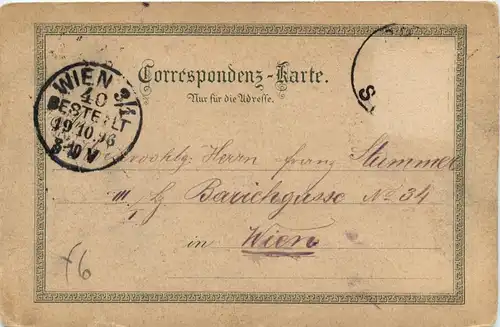 Correspondenz-Karte.
Nur für die Adresse.
WIEN 3/1
40
BESTELLT
19.10.96
8-10 V
S
Herrn Franz Stummer
III Barichgasse No 34
in Wien
f6